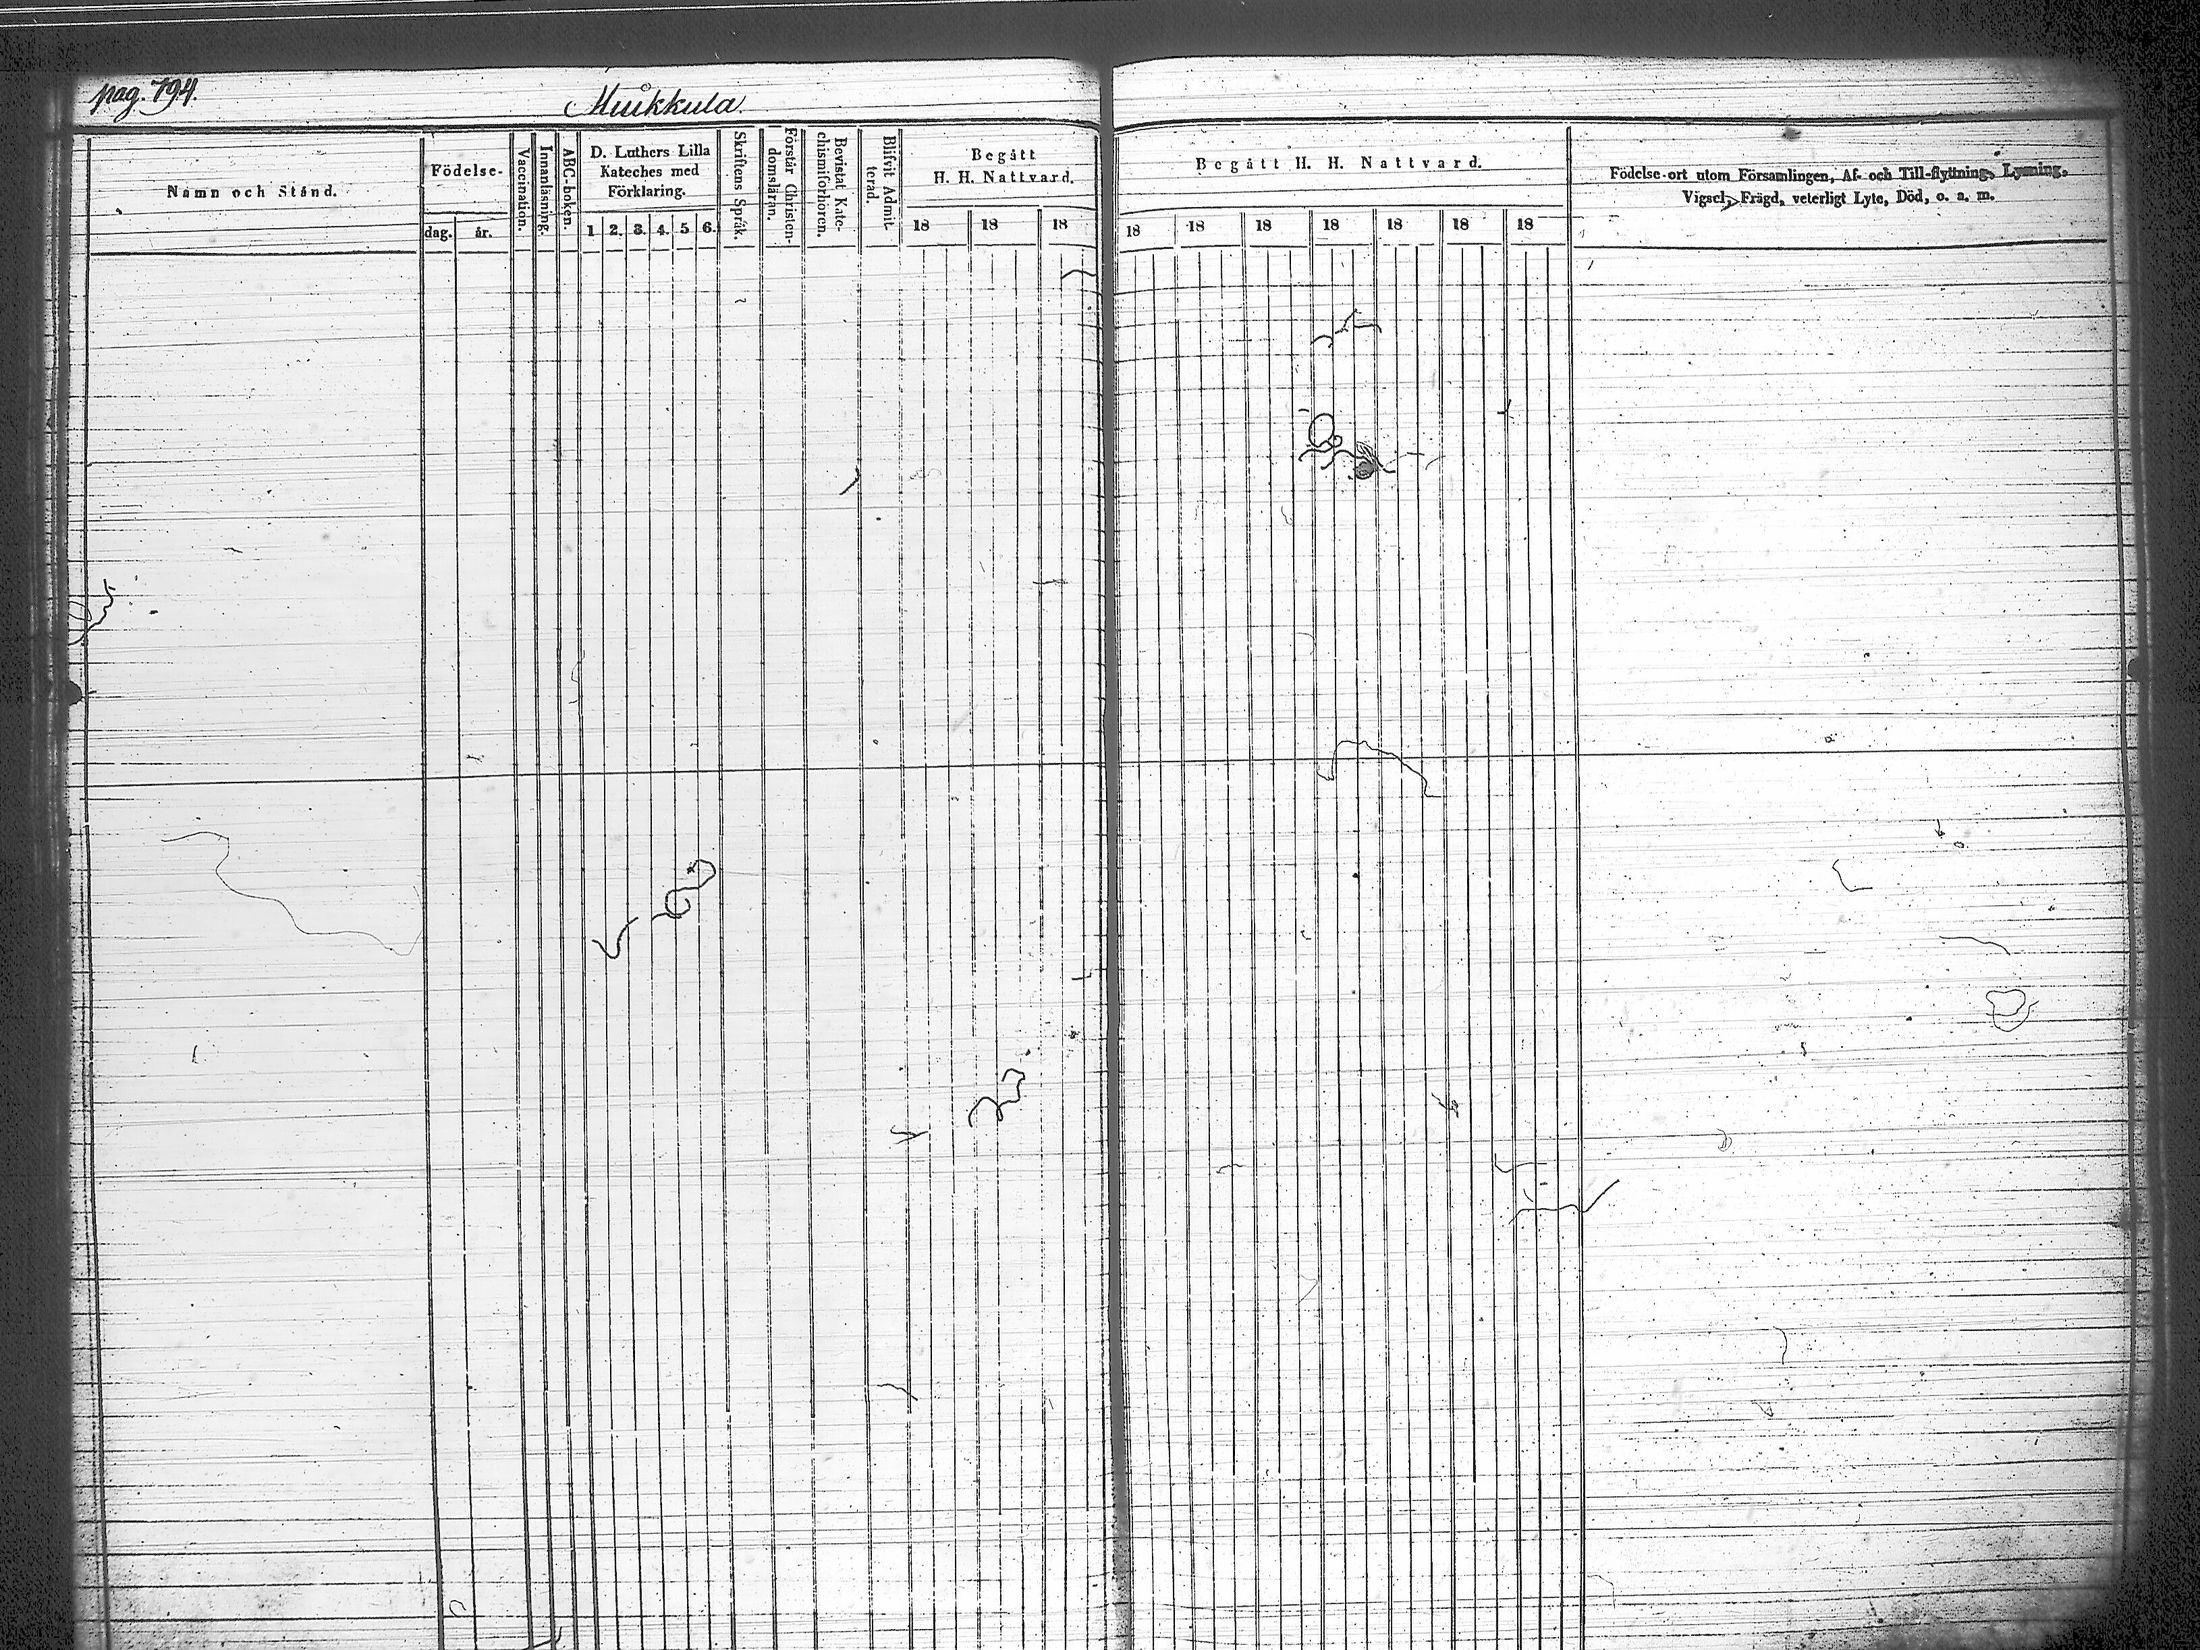 pag. 794.
Muikkula.
Namn och Stånd.
Födelse-
dag.
år.
Vaccination.
Innanläsning.
ABC-boken.
D. Luthers Lilla
Kateches med
Förklaring.
1 2. 3. 4. 5 6.
Skriftens Språk.
Förstår Christen-
domsläran.
Bevistat Kate-
chismiförhören.
Blifvit Admit-
terad.
Begått
H. H. Nattvard.
18 18 18
Begått H. H. Nattvard.
18 18 18 18 18 18 18
Födelse-ort utom Församlingen, Af- och Till-flyttning, Lysning,
Vigsel, Frägd, veterligt Lyte, Död, o. a. m.